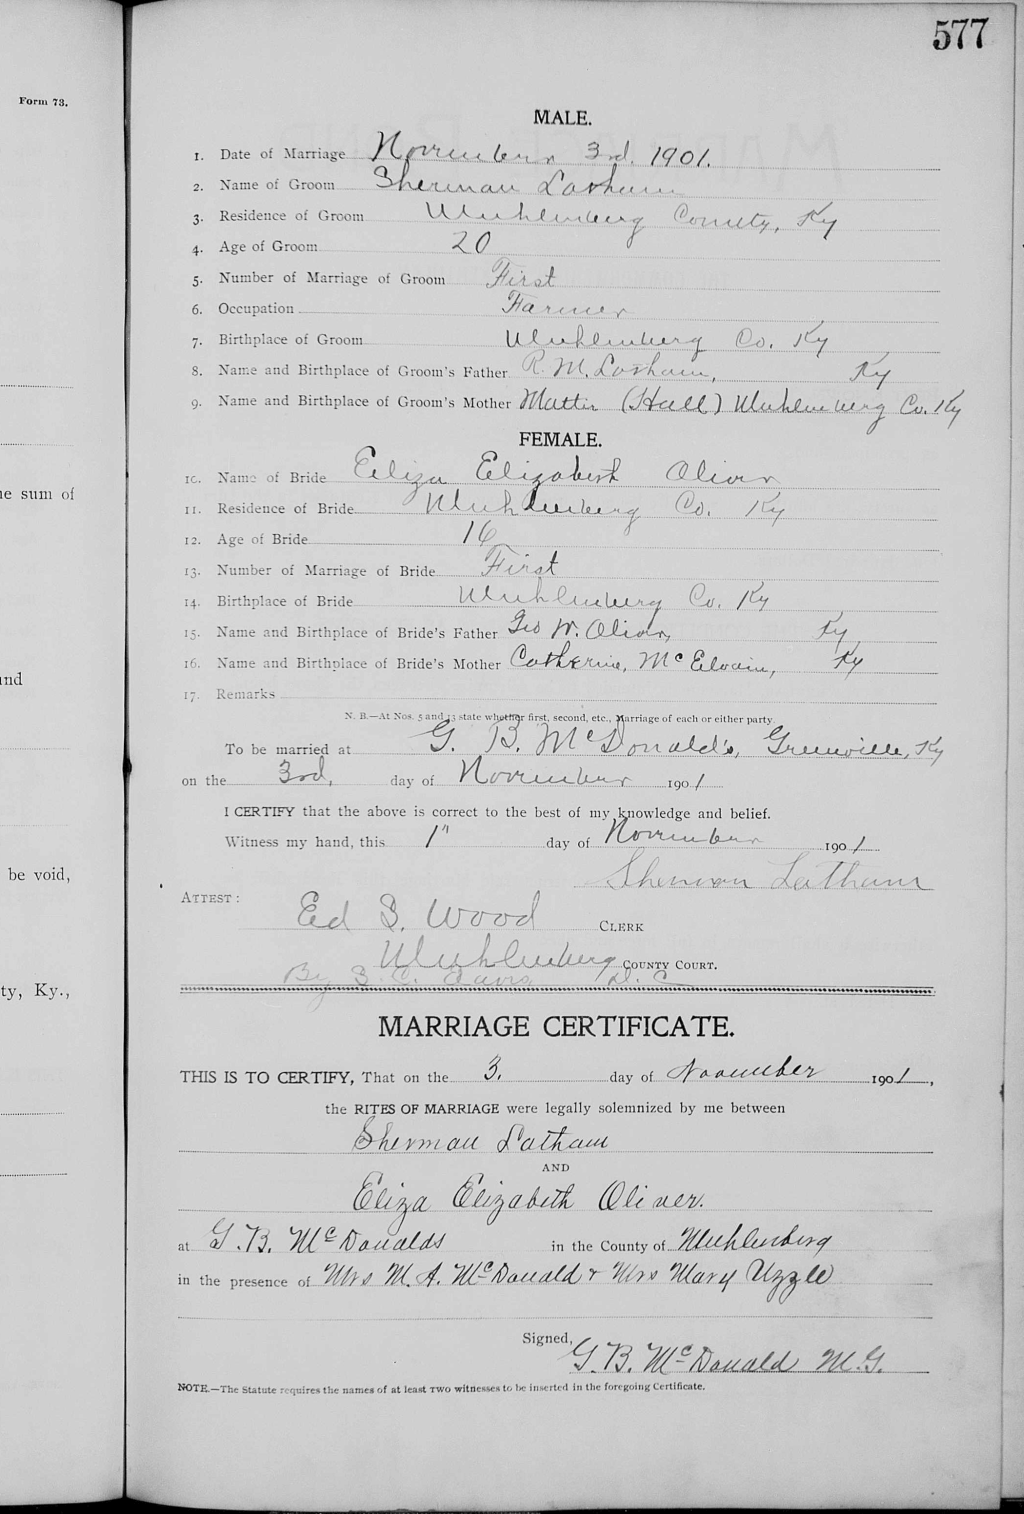 577
Form 73.
MALE.
1. Date of Marriage November 3rd. 1901.
2. Name of Groom Sherman Latham
3. Residence of Groom Muhlenberg County, Ky
4. Age of Groom 20
5. Number of Marriage of Groom First
6. Occupation Farmer
7. Birthplace of Groom Muhlenberg Co. Ky
8. Name and Birthplace of Groom's Father R. M. Latham, Ky
9. Name and Birthplace of Groom's Mother Mattie (Hall) Muhlenberg Co. Ky
FEMALE.
10. Name of Bride Eliza Elizabeth Oliver
11. Residence of Bride Muhlenberg Co. Ky
12. Age of Bride 16
13. Number of Marriage of Bride First
14. Birthplace of Bride Muhlenberg Co. Ky
15. Name and Birthplace of Bride's Father Geo W. Oliver, Ky
16. Name and Birthplace of Bride's Mother Catherine, McElvain, Ky
17. Remarks
N. B.—At Nos. 5 and 13 state whether first, second, etc., Marriage of each or either party.
To be married at G. B. McDonald's, Greenville, Ky
on the 3rd, day of November 1901
I CERTIFY that the above is correct to the best of my knowledge and belief.
Witness my hand, this 1" day of November 1901
Sherman Latham
ATTEST:
Ed S. Wood CLERK
Muhlenberg COUNTY COURT.
By S. C. Davis D. C
MARRIAGE CERTIFICATE.
THIS IS TO CERTIFY, That on the 3. day of November 1901,
the RITES OF MARRIAGE were legally solemnized by me between
Sherman Latham
AND
Eliza Elizabeth Oliver.
at G. B. McDonalds in the County of Muhlenberg
in the presence of Mrs M. A. McDonald + Mrs Mary Uzzle
Signed, G. B. McDonald M. G.
NOTE.—The Statute requires the names of at least TWO witnesses to be inserted in the foregoing Certificate.
he sum of
and
be void,
ty, Ky.,